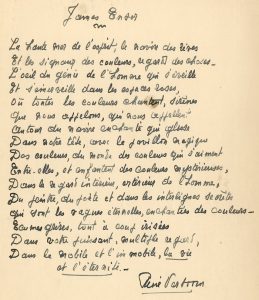 James Ensor
La haute mer de l'esprit, le navire des rêves
Et les signaux des couleurs, regard des choses.
L'œil du génie de l'homme qui s'éveille
Et s'émerveille dans les espaces roses,
Où toutes les couleurs chantent, sirènes
Que nous appelons, qui nous appellent
Autour du navire enchanté qui glisse
Dans notre tête, avec le pavillon magique
Des couleurs, du monde des couleurs qui s'aiment
Entre elles, et enfantent des couleurs mystérieuses,
Dans le regard intérieur, extérieur de l'homme,
Du peintre, du poète et dans les intelligences
qui sont les vagues éternelles, enchantées des couleurs
tout à coup irisées
Dans votre puissant, multiple regard,
Dans le mobile et l'immobile, la vie
et l'éternité.